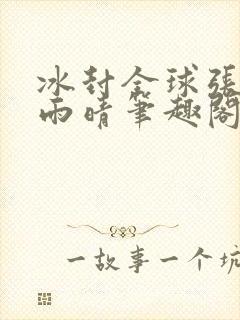 冰封全球張
雨晴筆趣閣
一故事一个坑